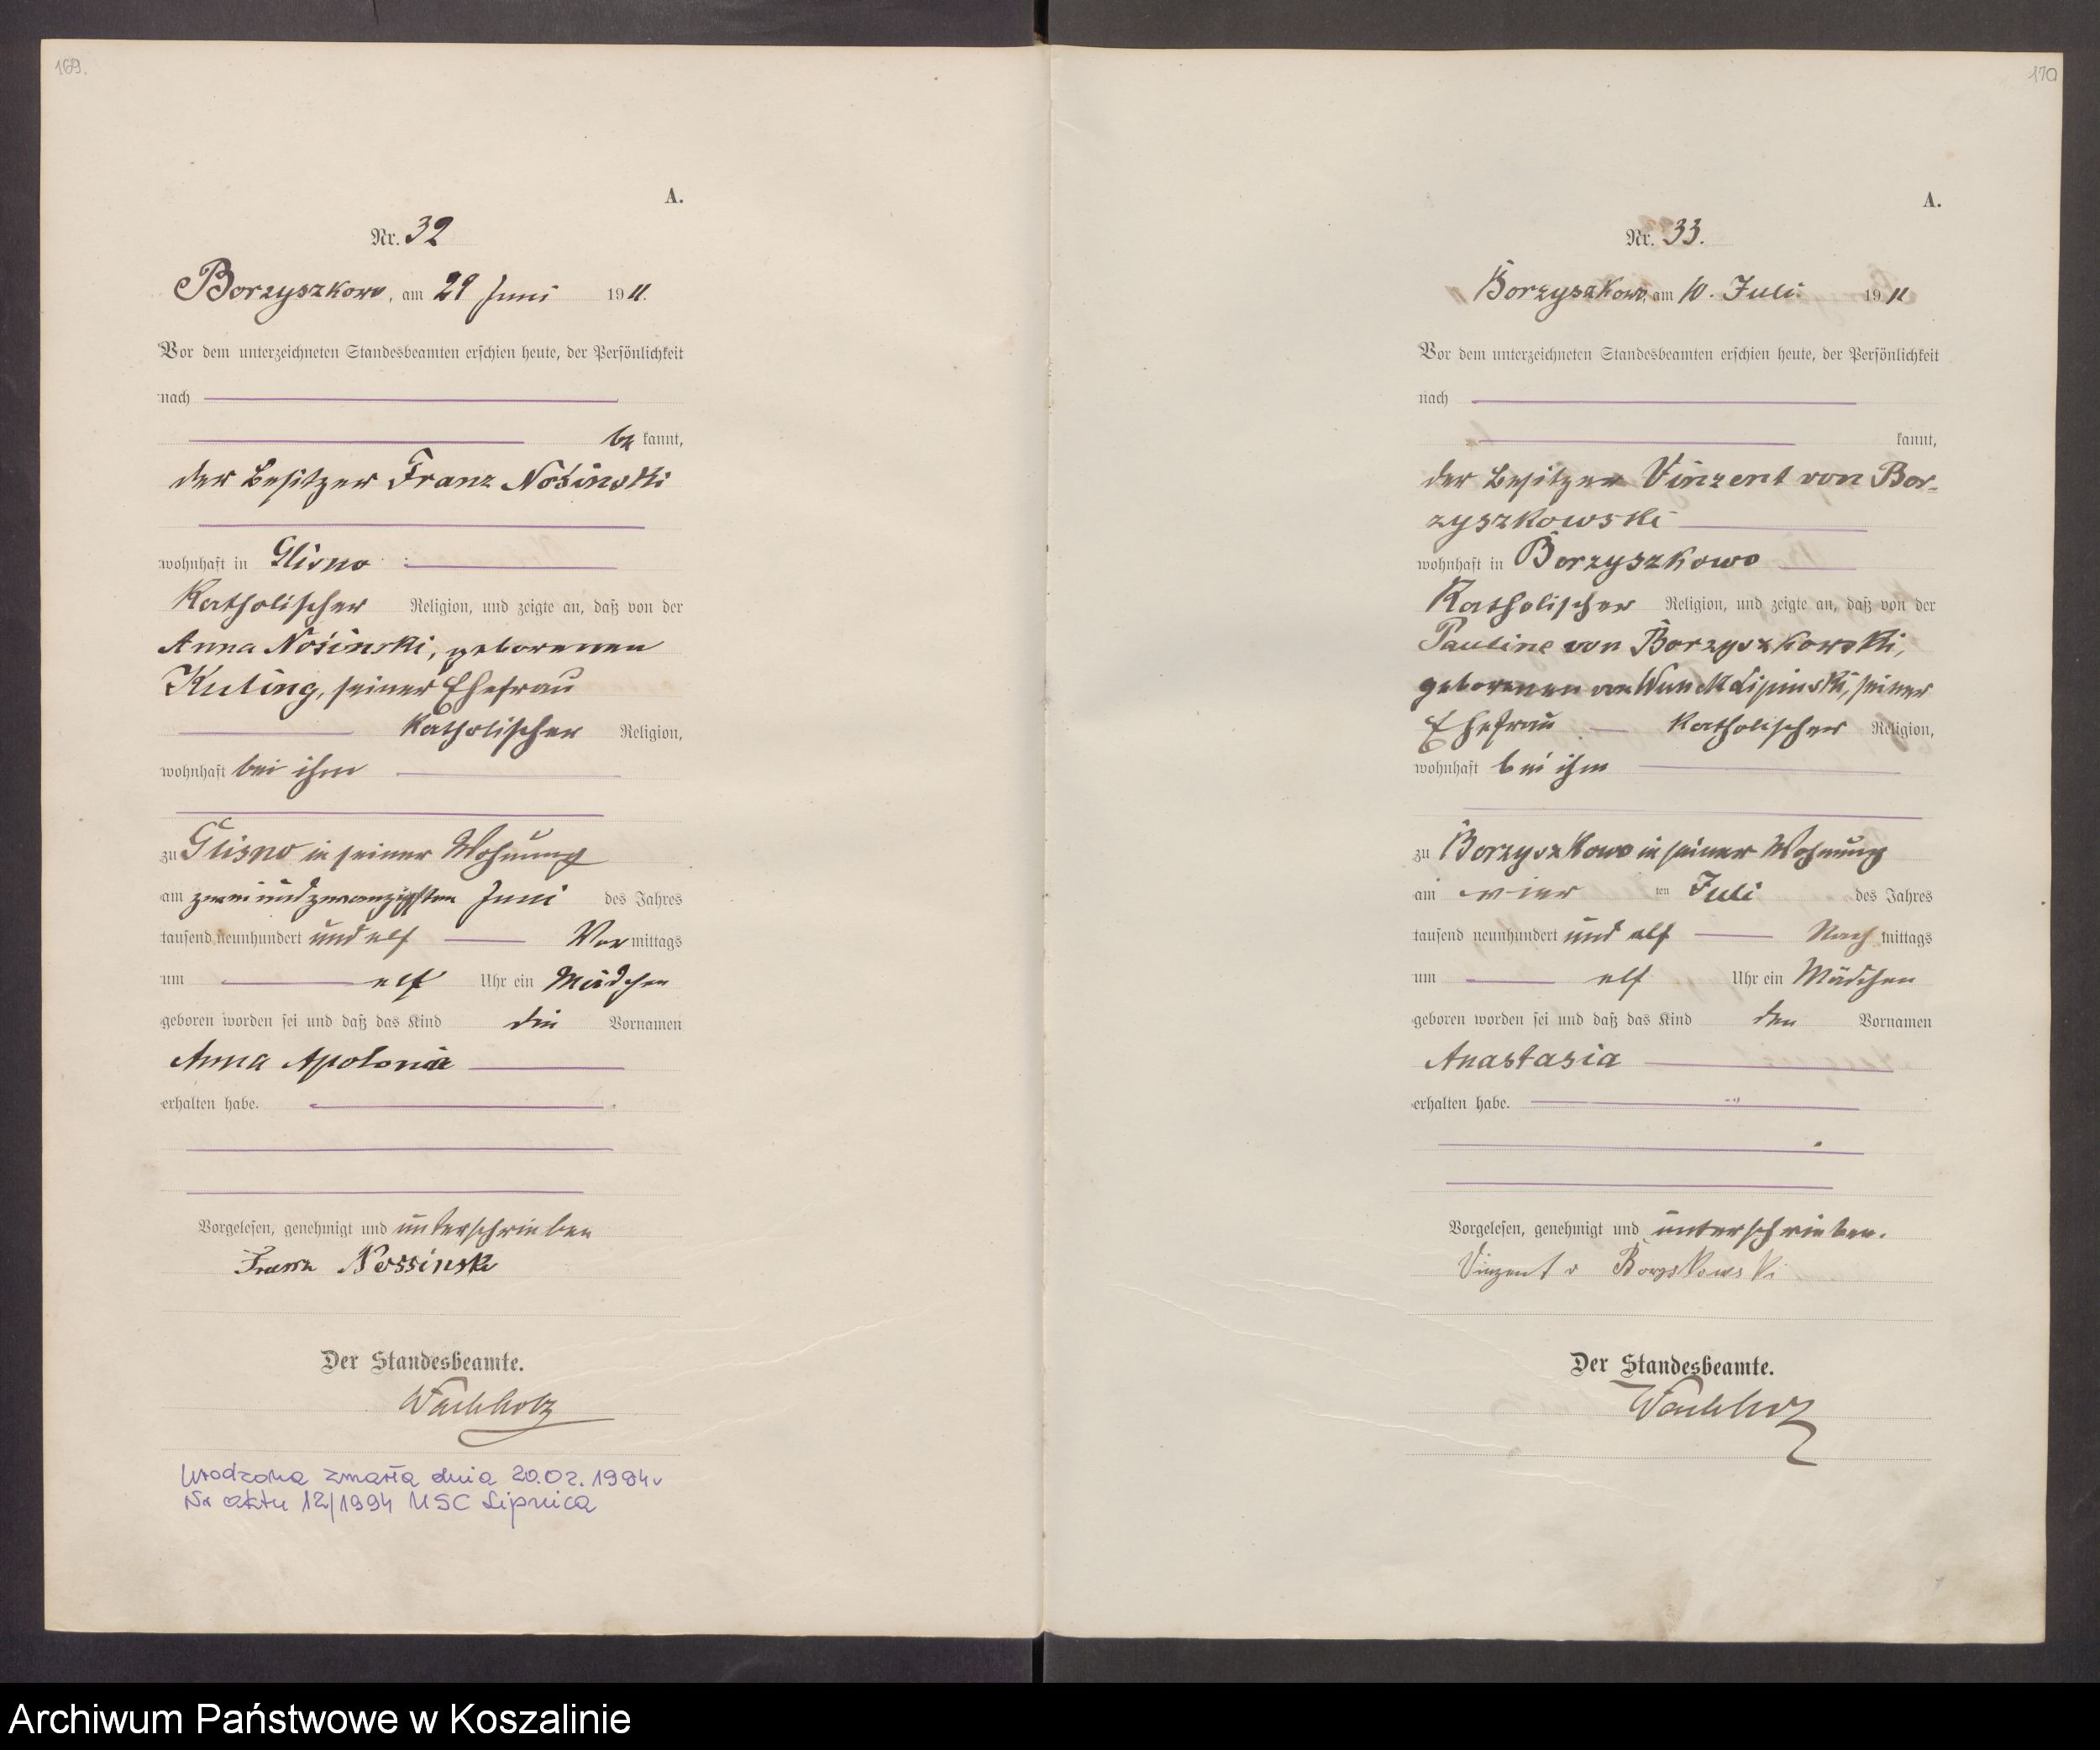 169.
A.
Nr. 32
Borzyszkowo, am 29 Juni 1911.
Vor dem unterzeichneten Standesbeamten erschien heute, der Persönlichkeit
nach
be kannt,
der Besitzer Franz Nosinski
wohnhaft in Glisno
katholischer Religion, und zeigte an, daß von der
Anna Nosinski, geborenen
Kuling, seiner Ehefrau
katholischer Religion,
wohnhaft bei ihm
zu Glisno in seiner Wohnung
am zweiundzwanzigsten Juni des Jahres
tausend neunhundert und elf Vor mittags
um elf Uhr ein Mädchen
geboren worden sei und daß das Kind die Vornamen
Anna Apolonia
erhalten habe.
Vorgelesen, genehmigt und unterschrieben
Franz Nossinski
Der Standesbeamte.
Wachholz
Urodzona zmarła dnia 20.02.1994r
Nr aktu 12/1994 USC Lipnica
170
A.
Nr. 33.
Borzyszkowo, am 10. Juli 1911
Vor dem unterzeichneten Standesbeamten erschien heute, der Persönlichkeit
nach
kannt,
der Besitzer Vinzent von Bor-
zyszkowski
wohnhaft in Borzyszkowo
katholischer Religion, und zeigte an, daß von der
Pauline von Borzyszkowski,
geborenen von Wnuck Lipinski, seiner
Ehefrau katholischer Religion,
wohnhaft bei ihm
zu Borzyszkowo in seiner Wohnung
am vier ten Juli des Jahres
tausend neunhundert und elf Nach mittags
um elf Uhr ein Mädchen
geboren worden sei und daß das Kind den Vornamen
Anastasia
erhalten habe.
Vorgelesen, genehmigt und unterschrieben.
Vinzent v Borzskowski
Der Standesbeamte.
Wachholz
Archiwum Państwowe w Koszalinie